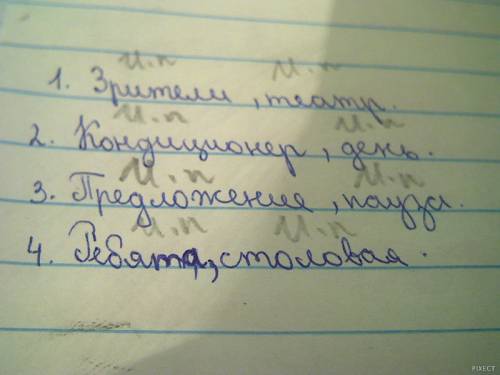 И.п И.п
1. Зрители, театр.
И.п И.п
2. Кондиционер, день.
И.п И.п
3. Предложение, пауза.
И.п И.п
4. Ребята, столовая.
PIXECT